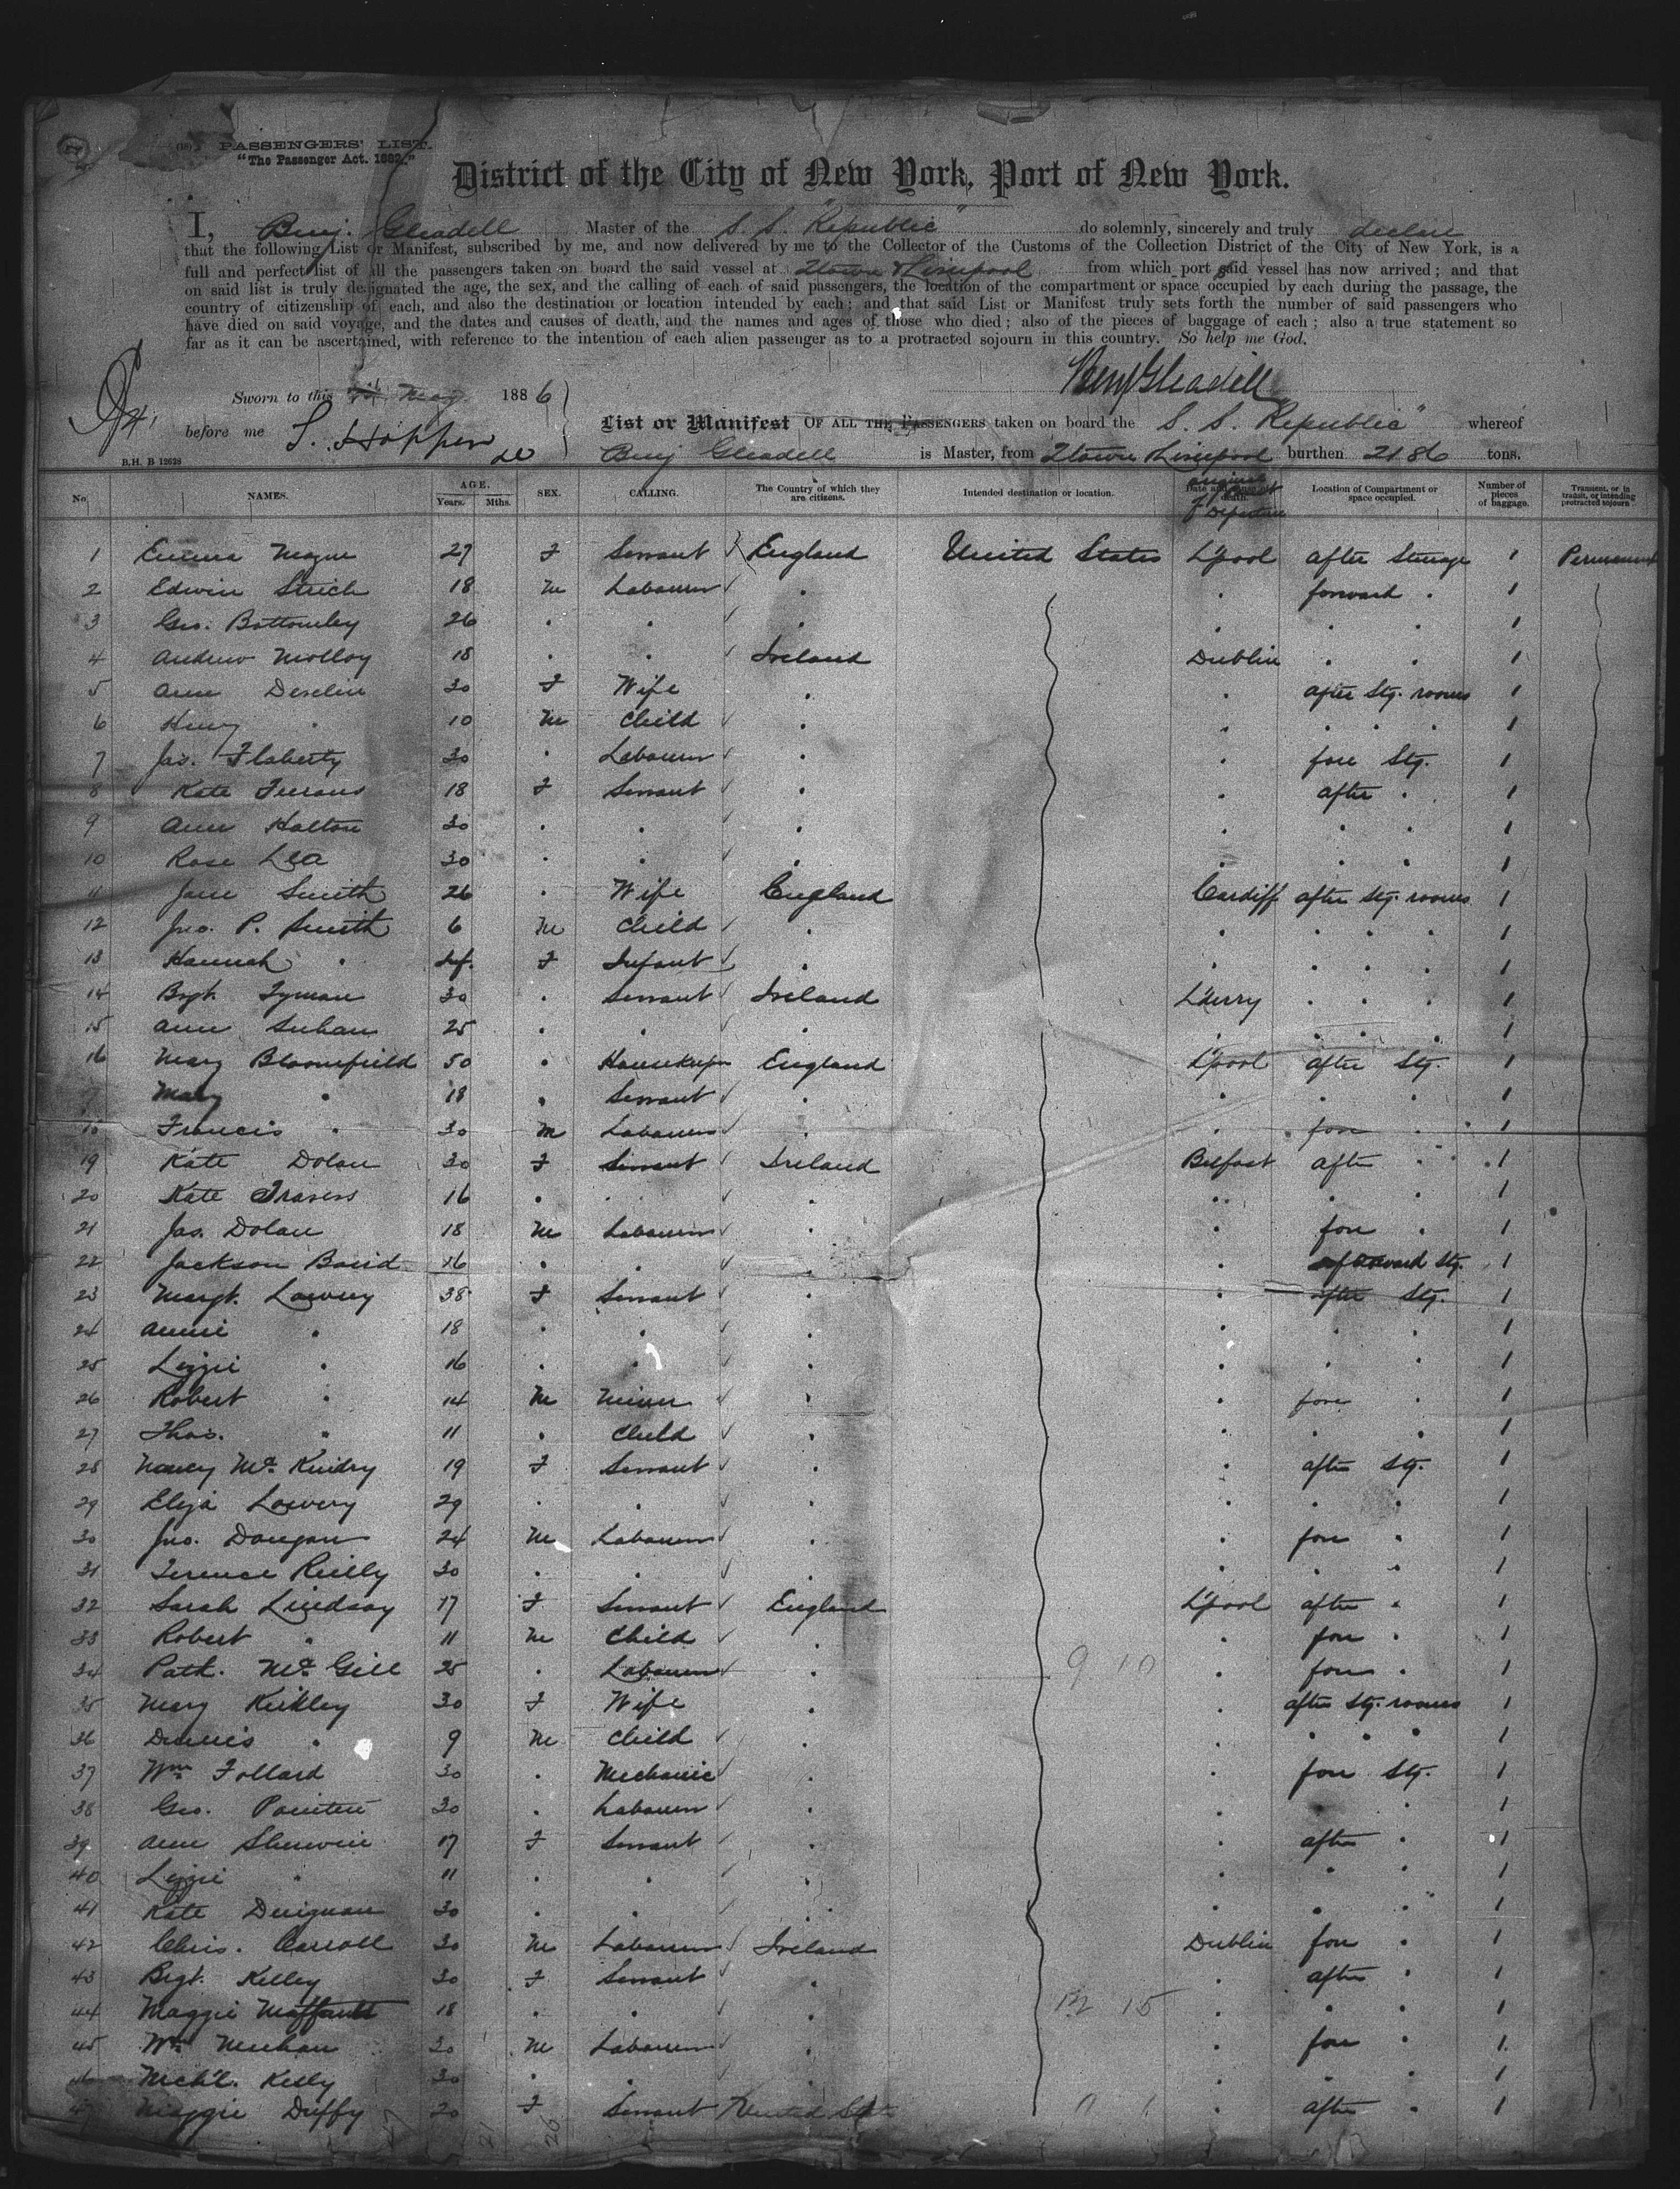 PASSENGERS' LIST.
"The Passenger Act. 1882."
District of the City of New York, Port of New York.
I, Benj. Gleadell Master of the S. S. "Republic" do solemnly, sincerely and truly declare
that the following List or Manifest, subscribed by me, and now delivered by me to the Collector of the Customs of the Collection District of the City of New York, is a
full and perfect list of all the passengers taken on board the said vessel at Qtown & Liverpool from which port said vessel has now arrived; and that
on said list is truly designated the age, the sex, and the calling of each of said passengers, the location of the compartment or space occupied by each during the passage, the
country of citizenship of each, and also the destination or location intended by each; and that said List or Manifest truly sets forth the number of said passengers who
have died on said voyage, and the dates and causes of death, and the names and ages of those who died; also of the pieces of baggage of each; also a true statement so
far as it can be ascertained, with reference to the intention of each alien passenger as to a protracted sojourn in this country. So help me God.
Benj Gleadell
Sworn to this May 1886
before me S. Hopper
List or Manifest OF ALL THE PASSENGERS taken on board the S. S. "Republic" whereof
Benj Gleadell is Master, from Qtown Liverpool burthen 2186 tons.
B.H. B 12628
No. NAMES. AGE. Years. Mths. SEX. CALLING. The Country of which they are citizens. Intended destination or location. Location of Compartment or space occupied. Number of pieces of baggage. Transient, or in transit, or intending protracted sojourn
1 Emma 27 F Servant England United States L'pool after Steerage 1 Permanent
2 Edwin 18 M Labourer . . forward . 1
3 Geo. Bottomley 26 . . . . . . 1
4 Andrew Molloy 18 . . Ireland Dublin . . 1
5 Ann Devlin 30 F Wife . . after Stg. rooms 1
6 Henry . 10 M Child . . . . . 1
7 Jas. Flaherty 30 . Labourer . . fore Stg. 1
8 Kate 18 F Servant . . after . 1
9 Ann Halton 30 . . . . . . 1
10 Rose Lea 30 . . . . . . 1
11 Jane Smith 26 . Wife England Cardiff after Stg. rooms 1
12 Jno. P. Smith 6 M Child . . . . . 1
13 Hannah . Inf. F Infant . . . . . 1
14 Bgt. 30 . Servant Ireland L'derry . . . 1
15 Ann 25 . . . . . . . 1
16 Mary Bloomfield 50 . Housekeeper England L'pool after Stg. 1
Mary . 18 . Servant . . . . 1
18 Francis . 30 M Labourer . . fore . 1
19 Kate Dolan 30 F Servant Ireland Belfast after . 1
20 Kate Travers 16 . . . . . . 1
21 Jas. Dolan 18 M Labourer . . fore . 1
22 Jackson 16 . . . . Stg. 1
23 Margt. Lowery 38 F Servant . . after Stg. 1
24 Annie . 18 . . . . . . 1
25 Lizzie . 16 . . . . . . 1
26 Robert . 14 M . . fore . 1
27 Thos. . 11 . Child . . . . 1
28 Nancy 19 F Servant . . after Stg. 1
29 Eliza Lowery 29 . . . . . . 1
30 Jno. 24 M Labourer . . fore . 1
31 Terence Reilly 30 . . . . . . 1
32 Sarah Lindsay 17 F Servant England L'pool after . 1
33 Robert . 11 M Child . . fore . 1
34 Patk. McGill 25 . Labourer . . fore . 1
35 Mary 30 F Wife . . after Stg. rooms 1
36 Dennis . 9 M Child . . . . . 1
37 Wm. Follard 30 . Mechanic . . fore Stg. 1
38 Geo. 30 . Labourer . . . . 1
39 Ann Sherwin 17 F Servant . . after . 1
40 Lizzie . 11 . . . . . . 1
41 Kate Duignan 30 . . . . . . 1
42 Chris. Carroll 30 M Labourer Ireland Dublin fore . 1
43 Bgt. Kelley 30 F Servant . . after . 1
44 Maggie 18 . . . . . . 1
45 Wm. Meehan 30 M Labourer . . fore . 1
Mich'l. Kelly 30 . . . . . . 1
Maggie Duffy 20 F Servant United States . after . 1